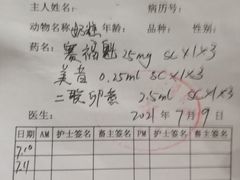 主人姓名: 病历号:
动物名称: 奶糕 年龄: 品种: 性别:
药名: 赛福魁 25mg SC×1×3
美昔 0.25ml SC×1×3
二联卵黄 2.5ml SC×1×3
医生: 2021年7月9日
日期 AM 护士签名 畜主签名 PM 护士签名 畜主签名
7.10